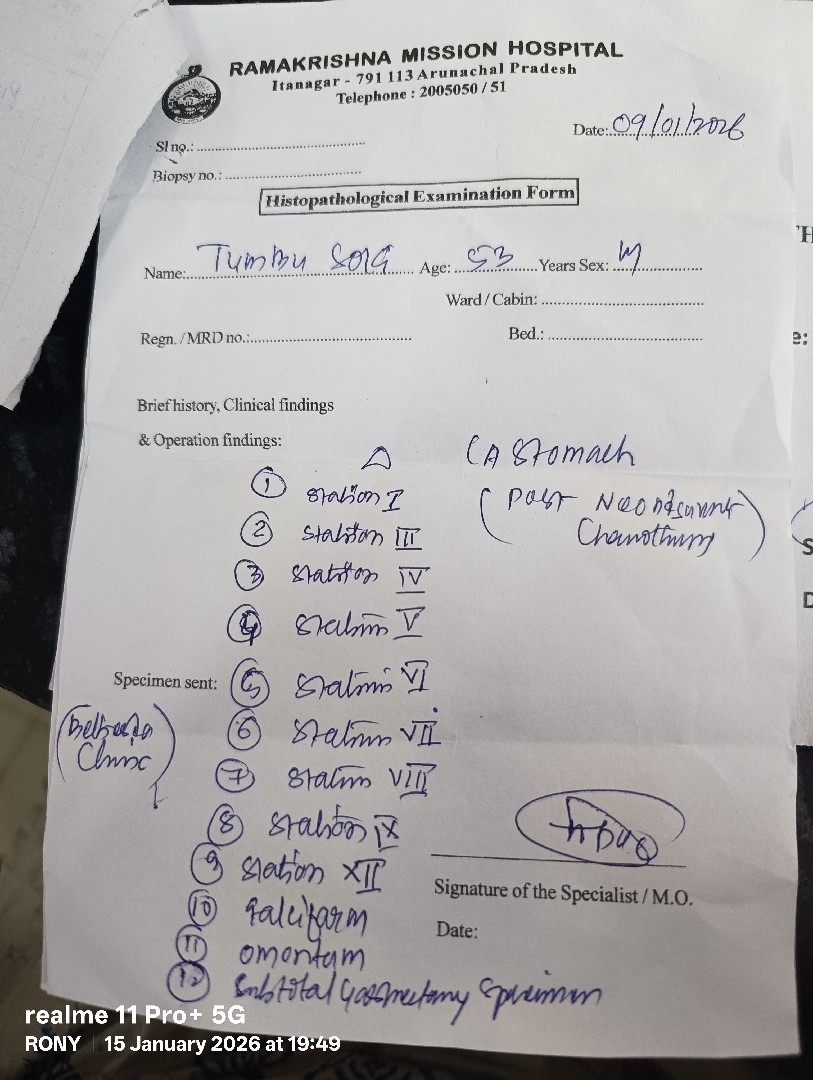 RAMAKRISHNA MISSION HOSPITAL
Itanagar - 791 113 Arunachal Pradesh
Telephone : 2005050 / 51
Date: 09/01/2026
Sl no.:
Biopsy no.:
Histopathological Examination Form
Name: Tumbu Age: 53 Years Sex: M
Ward / Cabin:
Regn. / MRD no.:
Bed.:
Brief history, Clinical findings
& Operation findings:
△ CA Stomach
① Station I
(Post
② Station III
③ Station IV
④ Station V
Specimen sent: ⑤ Station VI
⑥ Station VII
⑦ Station VIII
⑧ Station IX
⑨ Station XII
⑩ Falcifarm
⑪ Omentum
⑫ Subtotal Specimen
Signature of the Specialist / M.O.
Date:
realme 11 Pro+ 5G
RONY | 15 January 2026 at 19:49